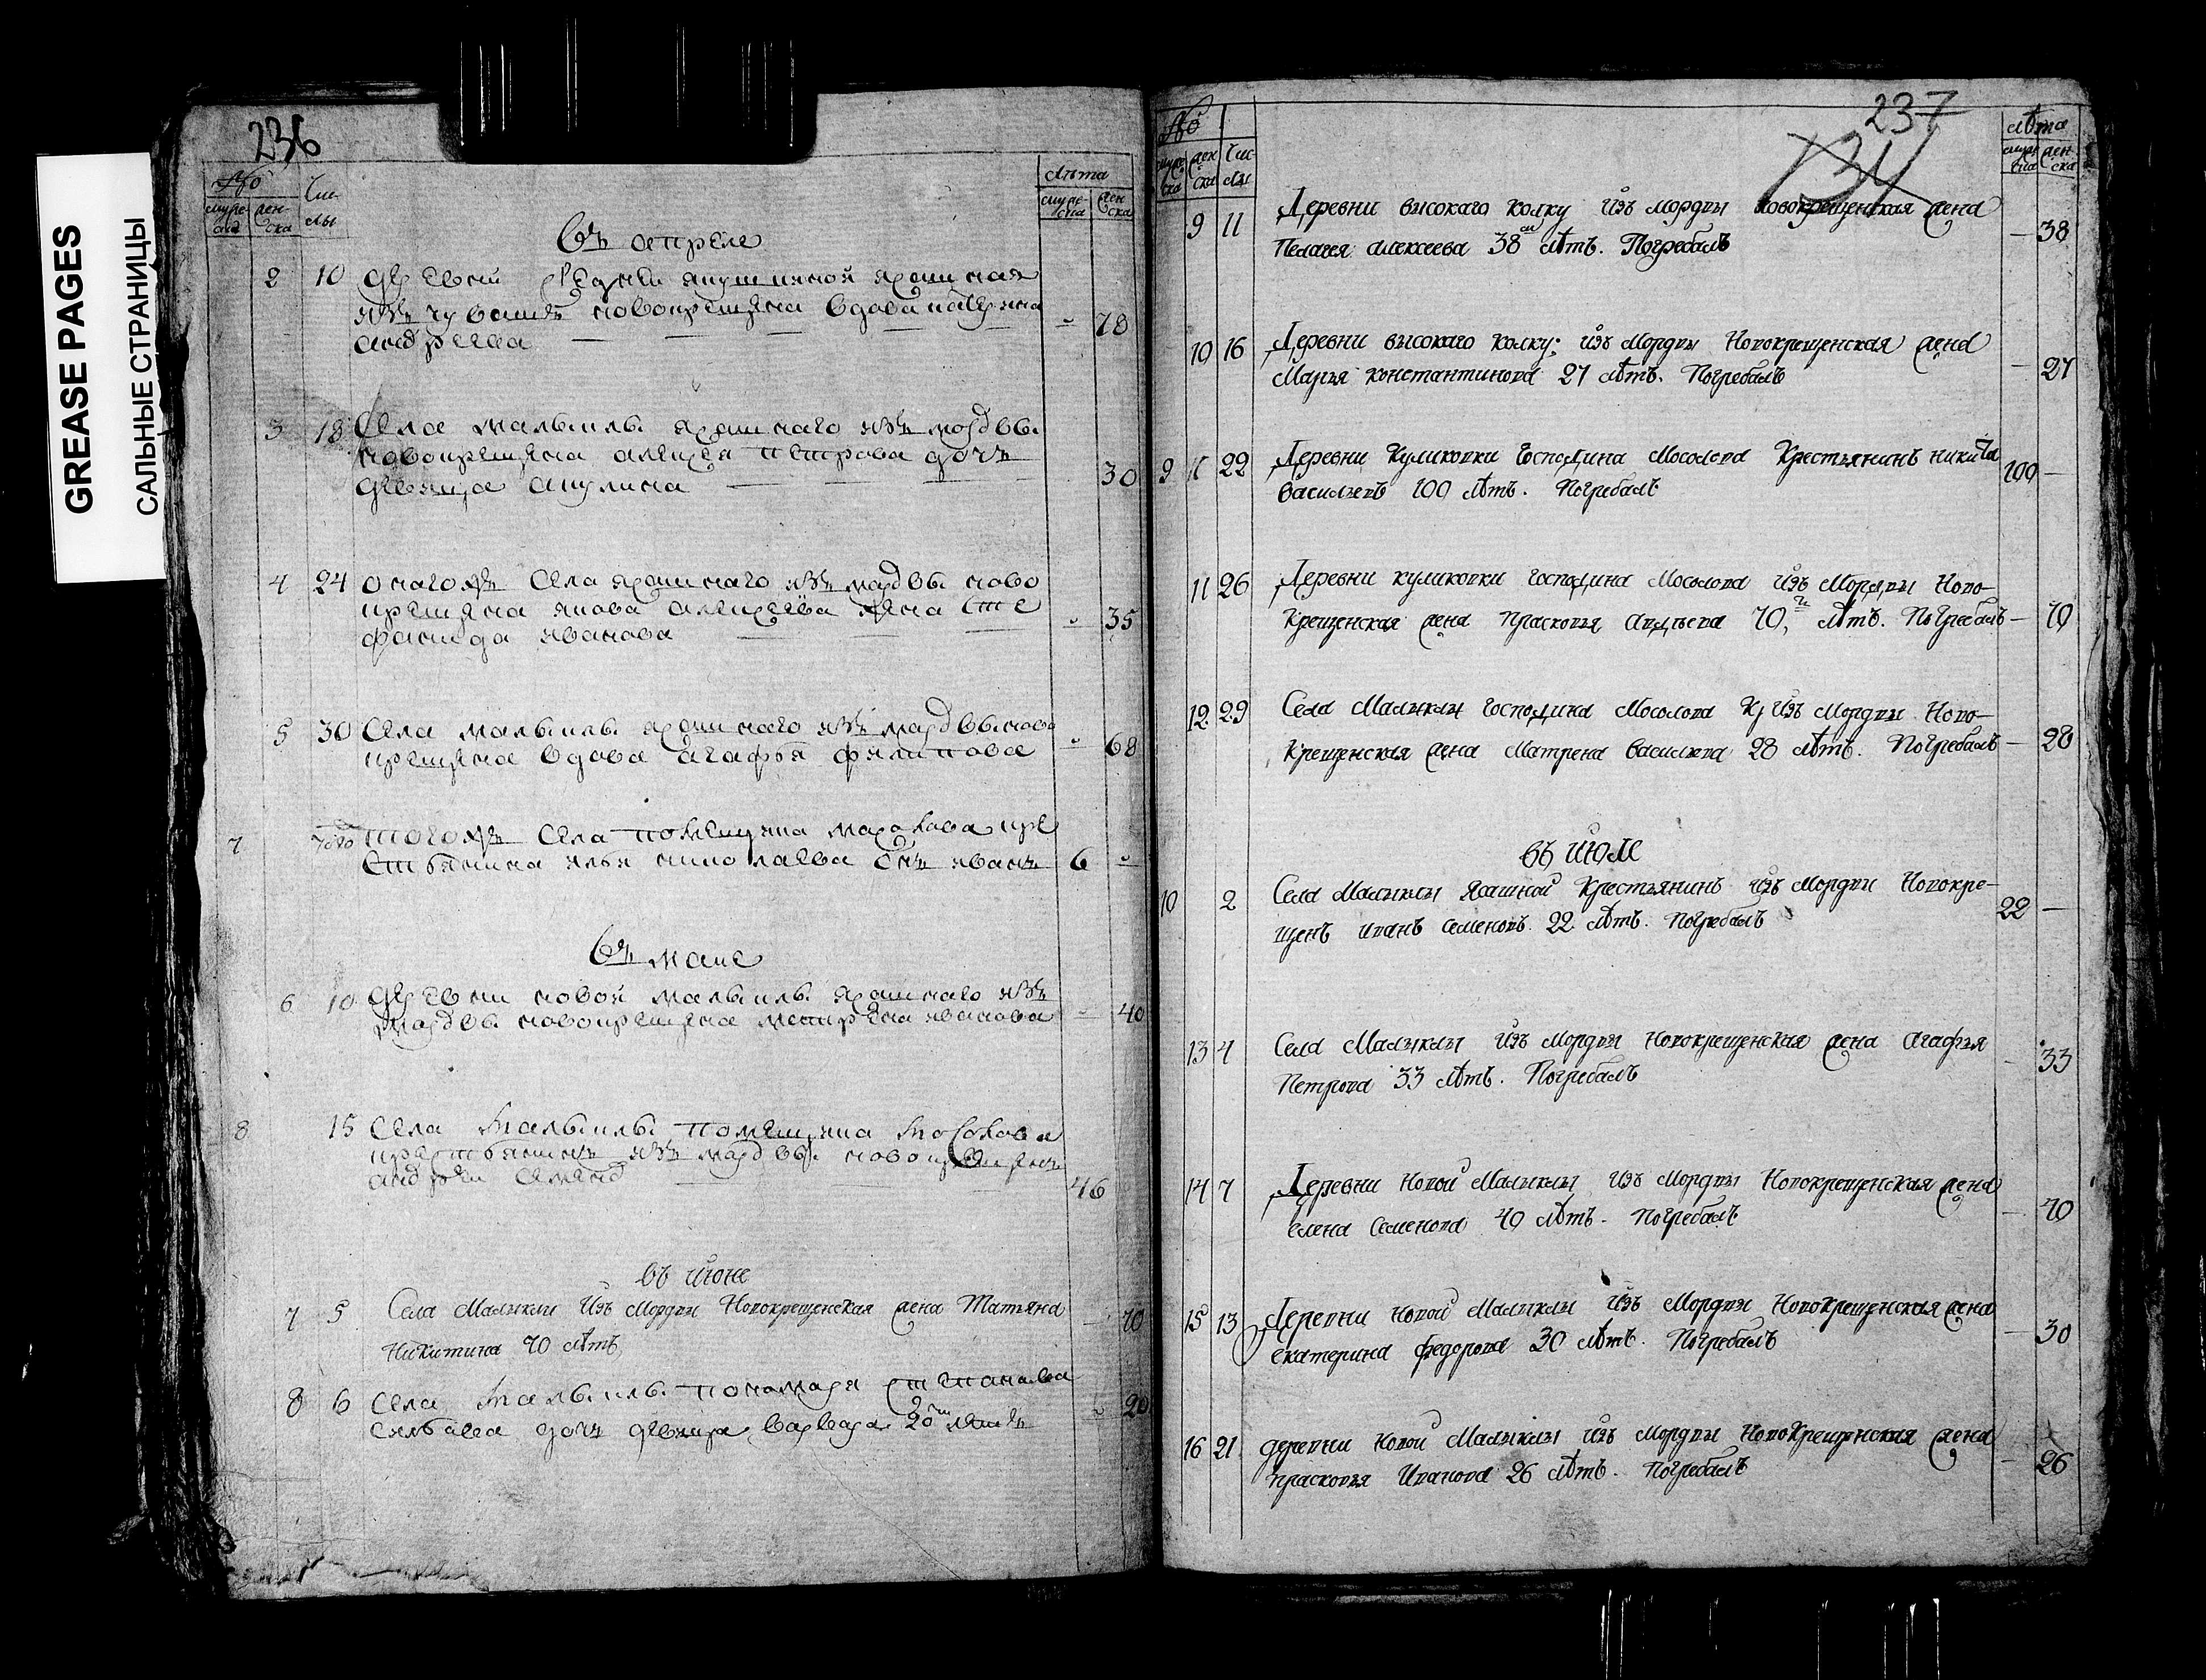 GREASE PAGES
САЛЬНЫЕ СТРАНИЦЫ
236
№
муже- жен-
ска ска
Чис-
лы
лѣта
муже- жен-
ска ска
Въ апреле
2 10 деревни якушкиной ясашная
изъ чувашъ новокрещена вдова
андреева - 78
3 18 Села малыклы ясашнаго изъ мордвы
новокрещена алексея петрова дочь
девица акулина 30
4 24 оногожъ села ясашнаго изъ мордвы ново
крещена якова алексеева жена сте
фанида иванова - 35
5 30 Села малыклы ясашнаго изъ мордвы ново
крещена вдова агафья филипова - 68
7 тогожъ села помещика масолова кре
стьянина илья николаева снъ иванъ 6 -
Въ маие
6 10 деревни новой малыклы ясашнаго изъ
мордвы новокрещена матрена иванова - 40
8 15 Села малыклы помещика мосолова
крестьянинъ изъ мордвы новокрещенъ
андреи 46
въ июне
7 5 Села Малыклы Изъ Мордвы Новокрещенская жена Татьяна
Никитина 70 лѣтъ - 70
8 6 Села малыклы пономаря степана
дочь девица варвара 20 летъ - 20
237
134
№
муже- жен-
ска ска
Чис-
лы
лѣта
муже- жен-
ска ска
9 11 Деревни высокаго колку изъ мордвы новокрещенская жена
Пелагея алексеева 38 лѣтъ. Погребалъ - 38
10 16 Деревни высокаго колку; изъ Мордвы Новокрещенская жена
Марья константинова 27 лѣтъ. Погребалъ - 27
9 22 Деревни Куликовки Господина Мосолова Крестьянинъ никита
Васильевъ 100 лѣтъ. Погребалъ 100 -
11 26 Деревни куликовки господина Мосолова Изъ Мордвы Ново-
Крещенская жена Прасковья Авдѣева 70, лѣтъ. Погребалъ - 70
12 29 Села Малыклы господина Мосолова Изъ Мордвы Ново-
Крещенская жена Матрена Васильева 28 лѣтъ. Погребалъ - 28
въ Июле
10 2 Села Малыклы Ясашной Крестьянинъ Изъ Мордвы Новокре-
щенъ иванъ семеновъ. 22 лѣтъ. Погребалъ 22 -
13 4 Села Малыклы Изъ Мордвы Новокрещенская жена Агафья
Петрова 33 лѣтъ. Погребалъ - 33
14 7 Деревни Новой Малыклы Изъ Мордвы Новокрещенская жена
елена Семенова 40 лѣтъ. Погребалъ - 40
15 13 Деревни новой Малыклы Изъ Мордвы Новокрещенская жена
екатерина федорова 30 лѣтъ. Погребалъ - 30
16 21 деревни Новой Малыклы изъ Мордвы Новокрещенская жена
прасковья Иванова 26 лѣтъ. Погребалъ - 26